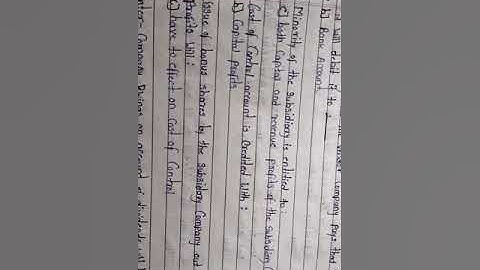 it will debit it to
b) Bank Account
Company pays that
Minority of the subsidiary is entitled to:
c) both Capital and revenue profits of the Subsidiary
Cost of Control account is Credited with:
b) Capital profits
Issue of bonus shares by the Subsidiary Company out
profits will:
c) have to effect on Cost of Control
Inter- Company Owings on account of dividends